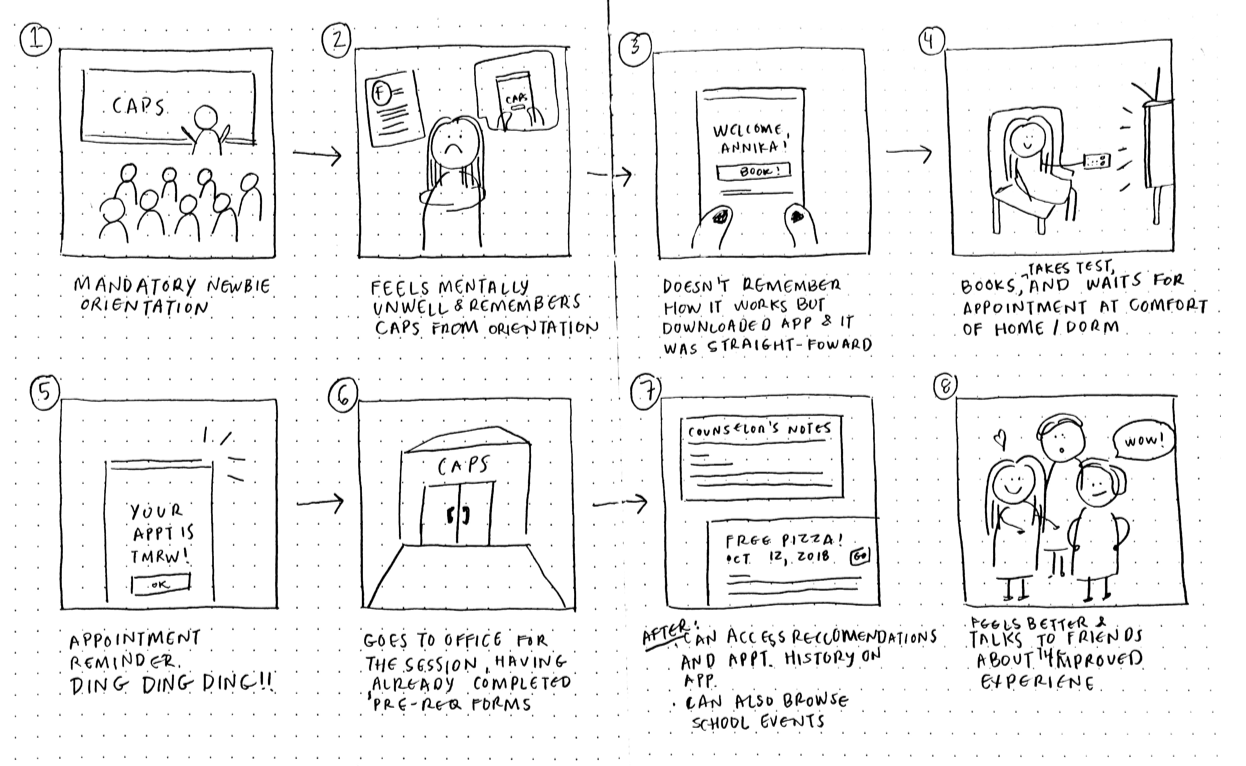 1
CAPS
MANDATORY NEWBIE
ORIENTATION
2
F
CAPS
FEELS MENTALLY
UNWELL & REMEMBERS
CAPS FROM ORIENTATION
3
WELCOME,
ANNIKA!
BOOK!
DOESN'T REMEMBER
HOW IT WORKS BUT
DOWNLOADED APP & IT
WAS STRAIGHT-FOWARD
4
BOOKS, TAKES TEST, AND WAITS FOR
APPOINTMENT AT COMFORT
OF HOME / DORM
5
YOUR
APPT IS
TMRW!
OK
APPOINTMENT
REMINDER.
DING DING DING!!
6
CAPS
GOES TO OFFICE FOR
THE SESSION, HAVING
ALREADY COMPLETED
PRE-REQ FORMS
7
COUNSELOR'S NOTES
FREE PIZZA!
OCT 12, 2018 GO
AFTER:
· CAN ACCESS RECCOMENDATIONS
AND APPT. HISTORY ON
APP
· CAN ALSO BROWSE
SCHOOL EVENTS
8
WOW!
FEELS BETTER &
TALKS TO FRIENDS
ABOUT IMPROVED
EXPERIENE